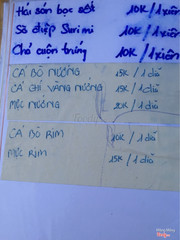 Hải sản bọc sốt 10K/1 xiên
Sò điệp Surimi 10K/1 xiên
Chả cuộn trứng 10K/1 xiên
CÁ BÒ NƯỚNG 15K/1 dĩa
CÁ CHỈ VÀNG NƯỚNG 15K/1 dĩa
MỰC NƯỚNG 20K/1 dĩa
CÁ BÒ RIM 10K/1 dĩa
MỰC RIM 15K/1 dĩa